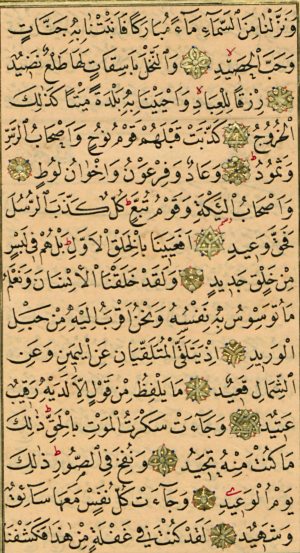 وَنَزَّلْنَا مِنَ السَّمَآءِ مَآءً مُبَارَكًا فَاَنْبَتْنَا بِهِ جَنَّاتٍ
وَحَبَّ الْحَصِيدِ وَالنَّخْلَ بَاسِقَاتٍ لَهَا طَلْعٌ نَضِيدٌ
رِزْقًا لِلْعِبَادِ وَاَحْيَيْنَا بِهِ بَلْدَةً مَيْتًا كَذٰلِكَ
الْخُرُوجُ كَذَّبَتْ قَبْلَهُمْ قَوْمُ نُوحٍ وَاَصْحَابُ الرَّسِّ
وَثَمُودُ وَعَادٌ وَفِرْعَوْنُ وَاِخْوَانُ لُوطٍ
وَاَصْحَابُ الْاَيْكَةِ وَقَوْمُ تُبَّعٍ كُلٌّ كَذَّبَ الرُّسُلَ
فَحَقَّ وَعِيدِ اَفَعَيِينَا بِالْخَلْقِ الْاَوَّلِ بَلْ هُمْ فِي لَبْسٍ
مِنْ خَلْقٍ جَدِيدٍ وَلَقَدْ خَلَقْنَا الْاِنْسَانَ وَنَعْلَمُ
مَا تُوَسْوِسُ بِهِ نَفْسُهُ وَنَحْنُ اَقْرَبُ اِلَيْهِ مِنْ حَبْلِ
الْوَرِيدِ اِذْ يَتَلَقَّى الْمُتَلَقِّيَانِ عَنِ الْيَمِينِ وَعَنِ
الشِّمَالِ قَعِيدٌ مَا يَلْفِظُ مِنْ قَوْلٍ اِلَّا لَدَيْهِ رَقِيبٌ
عَتِيدٌ وَجَآءَتْ سَكْرَةُ الْمَوْتِ بِالْحَقِّ ذٰلِكَ
مَا كُنْتَ مِنْهُ تَحِيدُ وَنُفِخَ فِي الصُّورِ ذٰلِكَ
يَوْمُ الْوَعِيدِ وَجَآءَتْ كُلُّ نَفْسٍ مَعَهَا سَآئِقٌ
وَشَهِيدٌ لَقَدْ كُنْتَ فِي غَفْلَةٍ مِنْ هٰذَا فَكَشَفْنَا